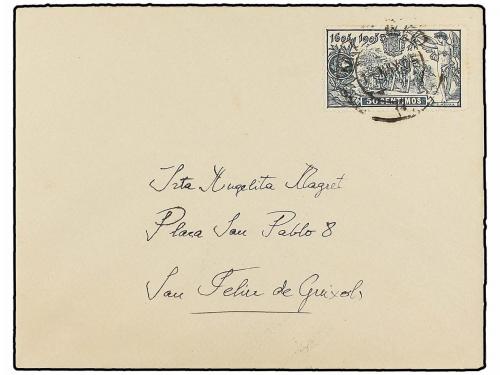 1605 1905
50 CENTIMOS
Srta Angelita Magret
Plaça San Pablo 8
San Feliu de Guixols